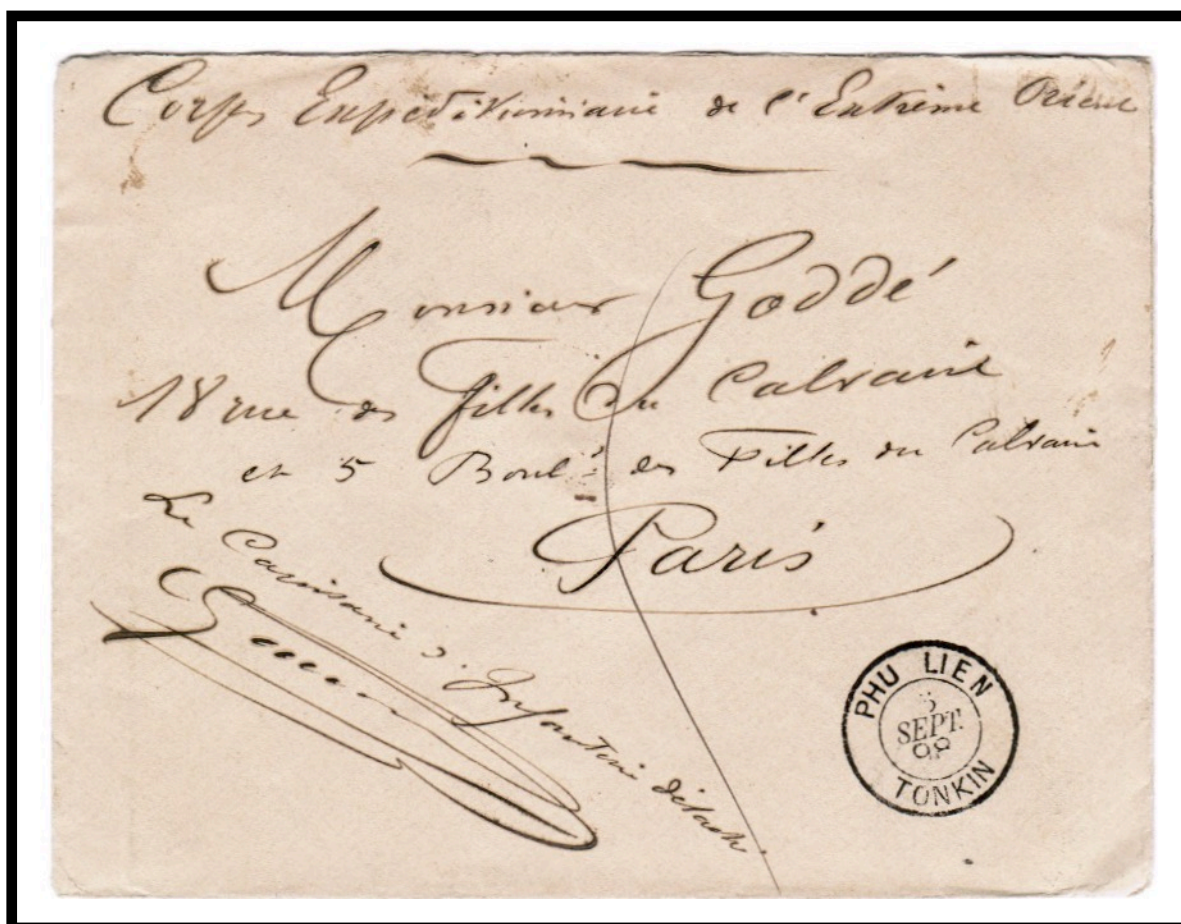 Corps Expéditionnaire de l'Extrême Orient
Monsieur Goddé
18 rue des Filles du Calvaire
et 5 Boul.d des Filles du Calvaire
Paris
Le Capitaine d'Infanterie détaché
PHU LIEN
5
SEPT.
98
TONKIN